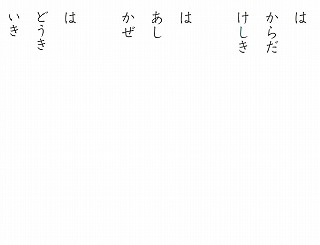 は
からだ
けしき
は
あし
かぜ
は
どうき
いき